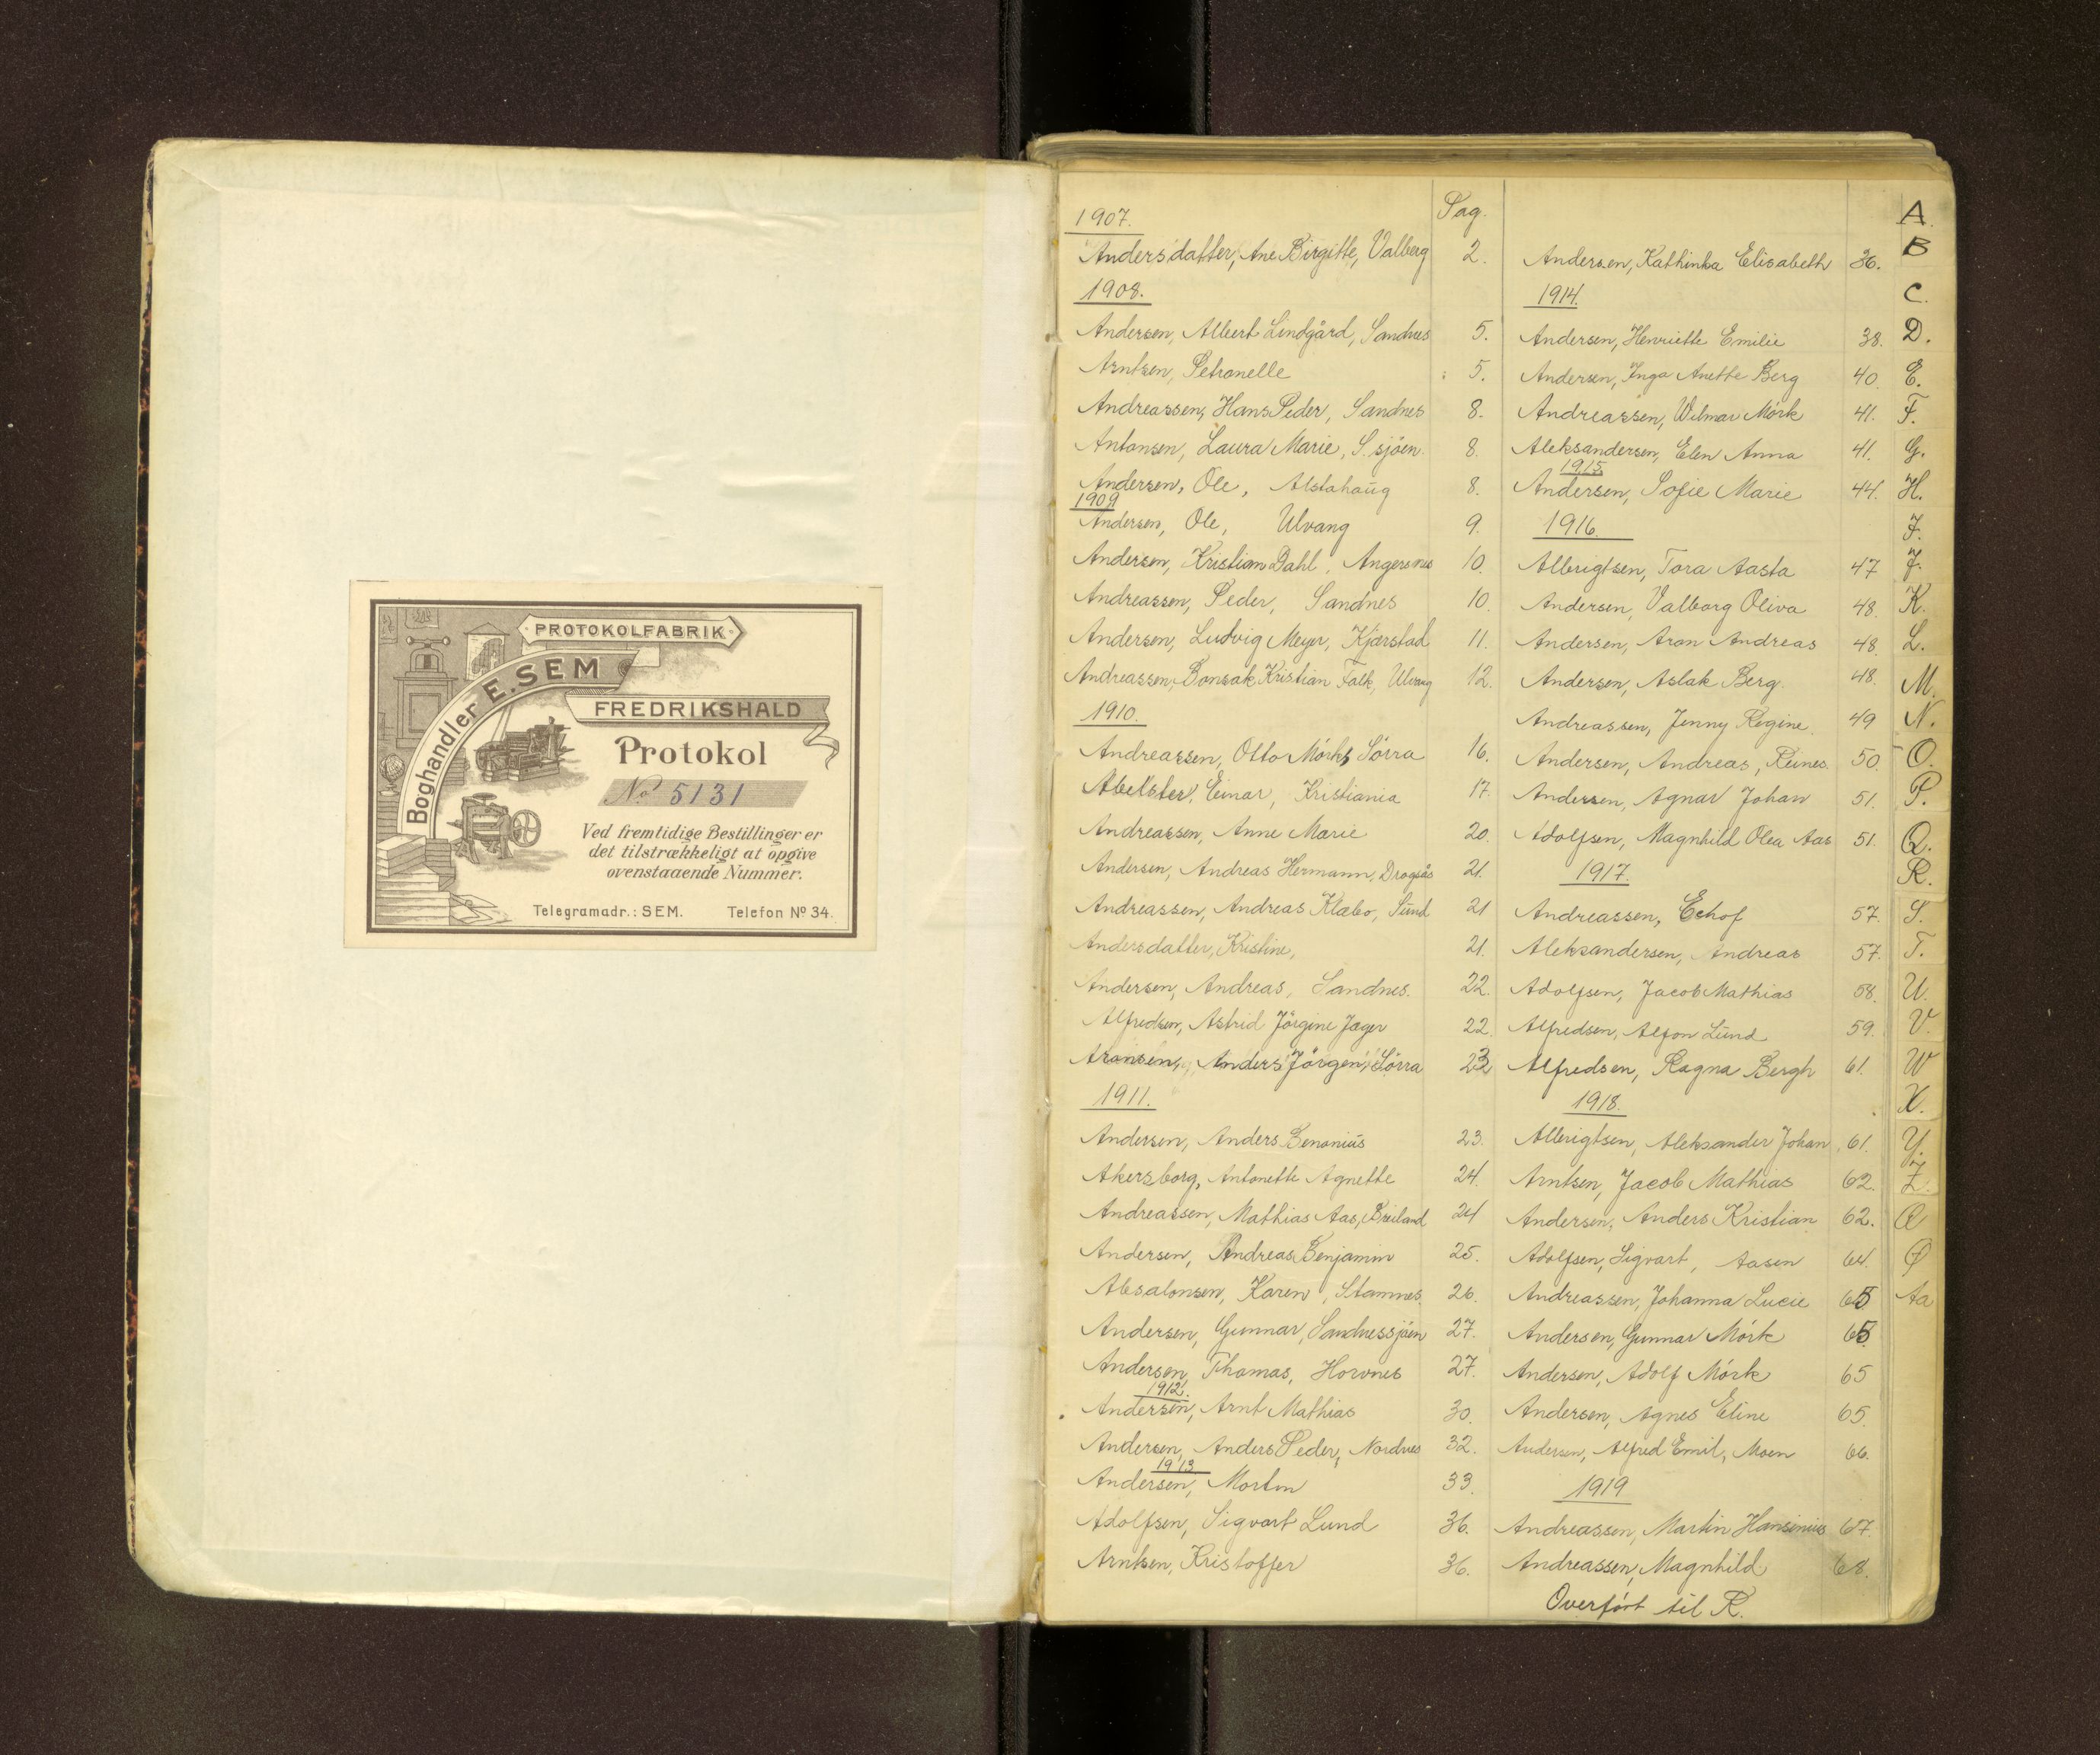 PROTOKOLFABRIK
Boghandler E. SEM
FREDRIKSHALD
Protokol
No 5131
Ved fremtidige Bestillinger er
det tilstrækkeligt at opgive
ovenstaaende Nummer.
Telegramadr.: SEM. Telefon No 34.
Pag.
1907.
Andersdatter, Ane Birgitte, Valberg 2.
1908.
Andersen, Albert Lindgård, Sandnes 5.
Arntsen, Petronelle 5.
Andreassen, Hans Peder, Sandnes 8.
Antonsen, Laura Marie, S.sjöen. 8.
Andersen, Ole, Alstahaug 8.
1909
Andersen, Ole, Ulvang 9.
Andersen, Kristian Dahl, Angersnes 10.
Andreassen, Peder, Sandnes 10.
Andersen, Ludvig Meyer, Kjærstad 11.
Andreassen, Bonsak Kristian Falk, Ulvang 12.
1910.
Andreassen, Otto Mörk, Sörra 16.
Abelster, Einar, Kristiania 17.
Andreassen, Anne Marie 20.
Andersen, Andreas Hermann, Dragsås 21.
Andreassen, Andreas Klæbo, Sund 21
Andersdatter, Kristine, 21.
Andersen, Andreas, Sandnes. 22.
Alfredsen, Astrid Jörgine Jager 22.
Aronsen, Anders Jörgen, Sörra 23
1911.
Andersen, Anders Benonius 23.
Akersborg, Antonette Agnette 24.
Andreassen, Mathias Aas, Breiland 24
Andersen, Andreas Benjamin 25.
Absalonsen, Karen, Stamnes. 26.
Andersen, Gunnar, Sandnessjöen 27.
Andersen, Thomas, Horvnes 27.
1912.
Andersen, Arnt Mathias 30.
Andersen, Anders Peder, Nordnes 32.
1913
Andersen, Morten 33.
Adolfsen, Sigvart Lund 36.
Arntsen, Kristoffer 36.
Andersen, Kathinka Elisabeth 36.
1914.
Andersen, Henriette Emilie 38.
Andersen, Inga Anette Berg 40.
Andreassen, Wilmar Mörk 41.
Aleksandersen, Elen Anna 41.
1915.
Andersen, Sofie Marie 44.
1916.
Albrigtsen, Tora Aasta 47
Andersen, Valborg Oliva 48.
Andersen, Aron Andreas 48.
Andersen, Aslak Berg. 48.
Andreassen, Jenny Regine. 49
Andersen, Andreas, Reines. 50.
Andersen, Agnar Johan 51.
Adolfsen, Magnhild Olea Aas 51.
1917.
Andreassen, Echof 57.
Aleksandersen, Andreas 57.
Adolfsen, Jacob Mathias 58.
Alfredsen, Alfon Lund 59.
Alfredsen, Ragna Bergh 61.
1918.
Albrigtsen, Aleksander Johan 61.
Arntsen, Jacob Mathias 62.
Andersen, Anders Kristian 62.
Adolfsen, Sigvart, Aasen 64.
Andreassen, Johanna Lucie 65
Andersen, Gunnar Mörk 65.
Andersen, Adolf Mörk 65
Andersen, Agnes Eline 65.
Andersen, Alfred Emil, Moen 66.
1919
Andreassen, Martin Hansinius 67.
Andreassen, Magnhild 68.
Overfört til R.
A.
B
C.
D.
E.
F.
G.
H.
I.
J.
K.
L.
M.
N.
O.
P.
Q.
R.
S.
T.
U.
V.
W
X.
Y.
Z.
Æ
Ø
Aa